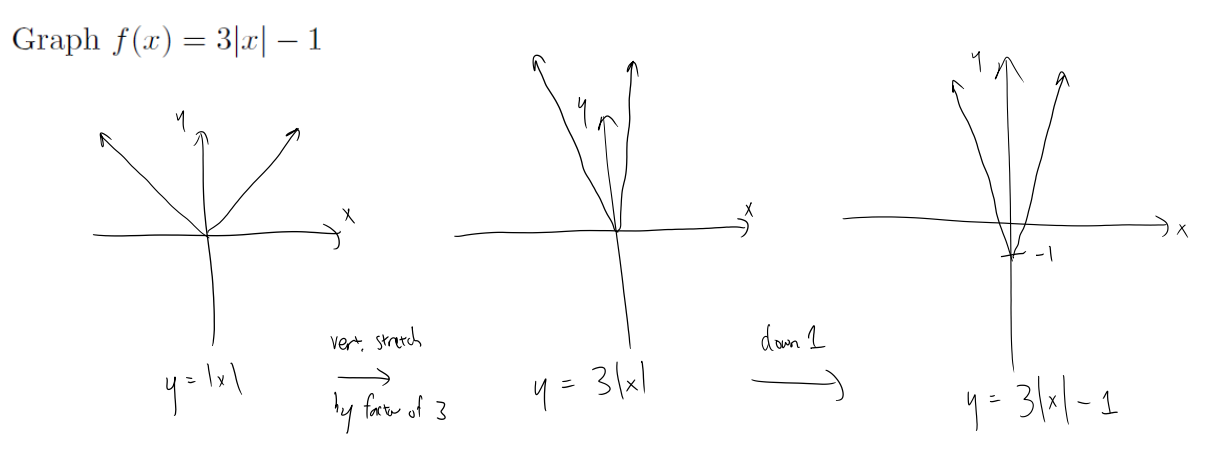 Graph f(x) = 3|x| − 1
y
x
y = |x|
vert. stretch
by factor of 3
y
x
y = 3|x|
down 1
y
x
-1
y = 3|x| - 1